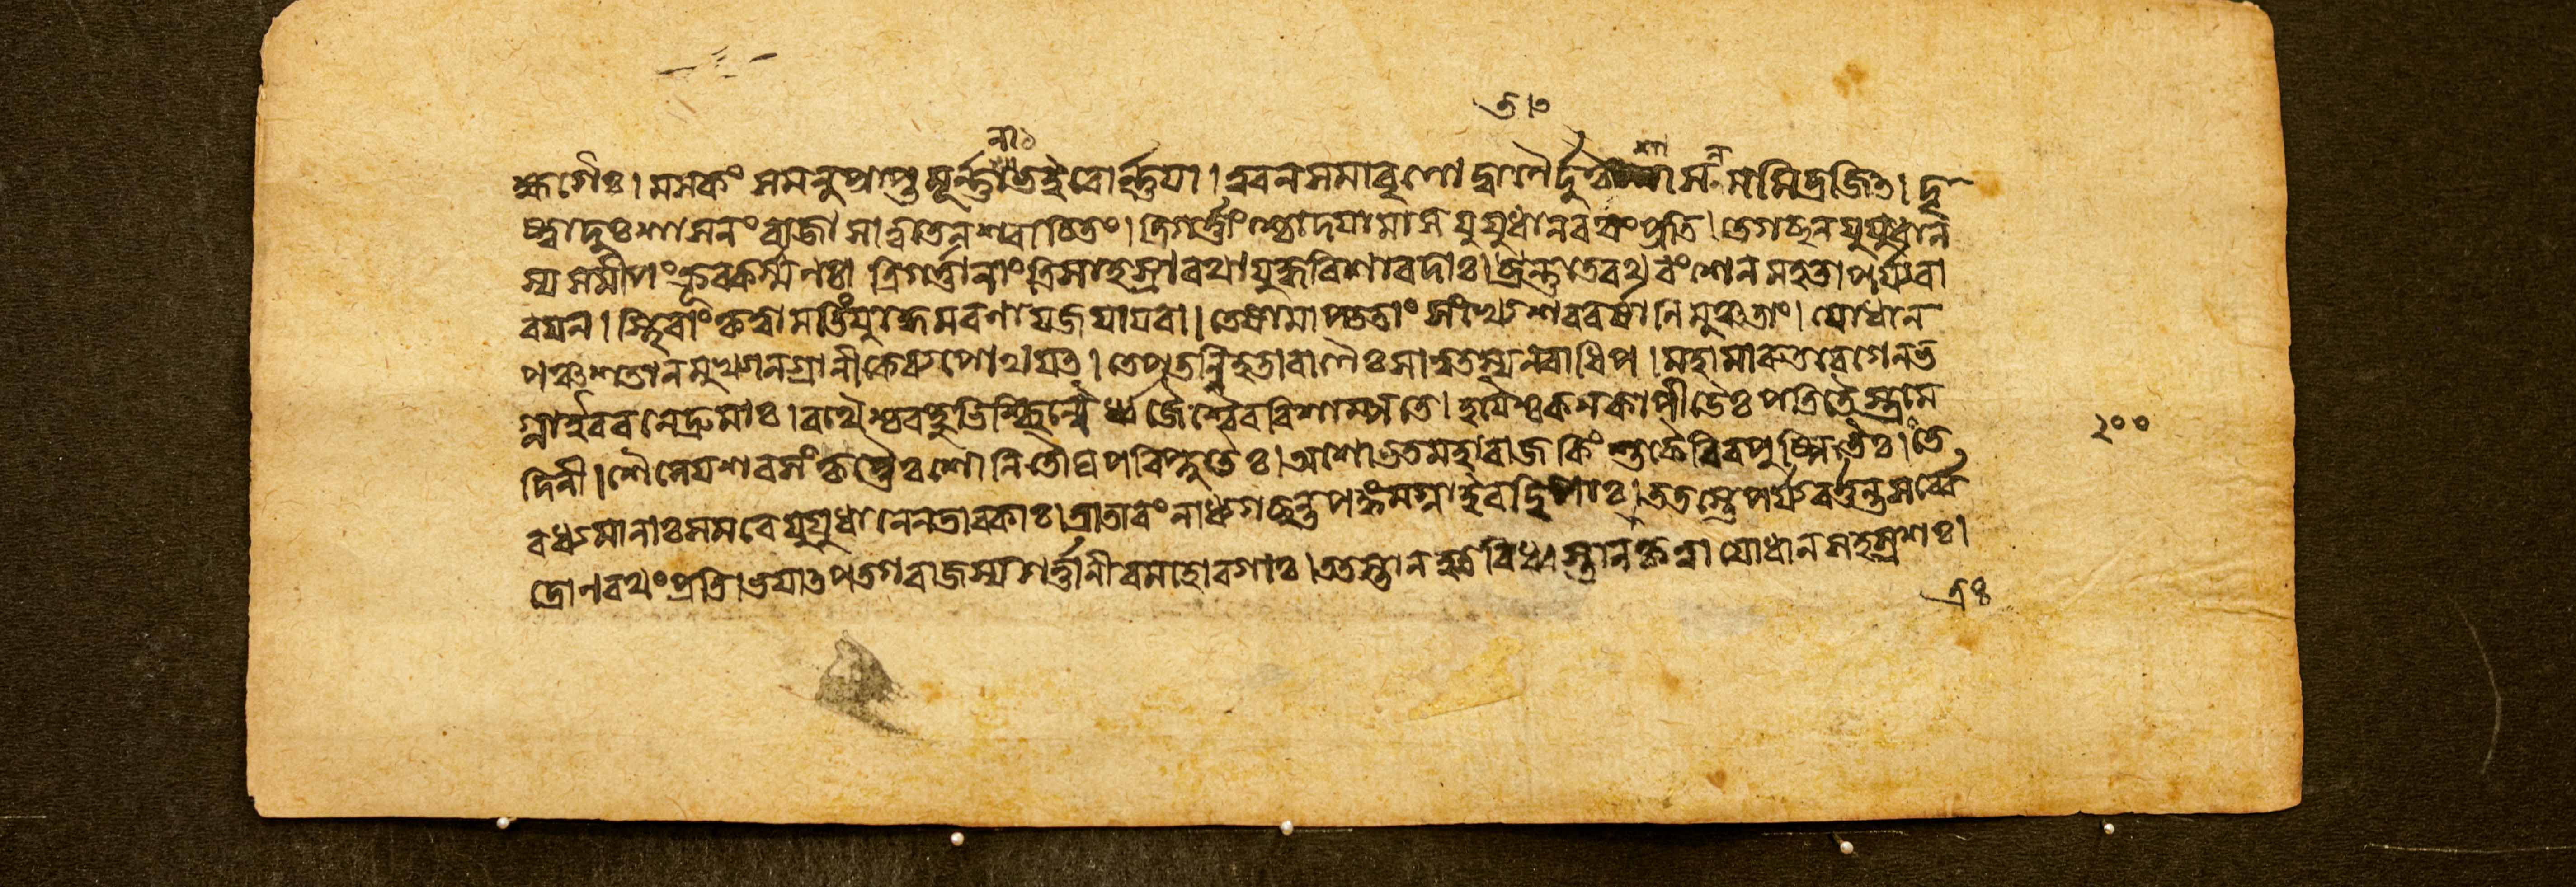 ঙ্কগৈঃ। মসকং সমনুপ্রাপ্ত মূর্ন্নুনাভিরিবোর্ন্নুয়া। ত্বরন সমাবৃণোদ্বাণৈর্দুঃশাসনমমিত্রজিত। দৃ
ষ্ট্বা দুঃশাসনং রাজা সাত্বতেন শরাচিতং। ত্রিগর্ত্তাংশ্চোদয়ামাস যুযুধানরথং প্রতি। তেগচ্ছন যুযুধান
স্য সমীপং ক্রূরকর্ম্মনঃ। ত্রিগর্ত্তানাং ত্রিসাহস্রা রথা যুদ্ধবিশারদাঃ। তন্তু তে রথ বংশেন মহতা পর্য্যবা
রয়ন। স্থিরাং কৃত্বা মতিং যুদ্ধে মরণায় জয়ায় বা। তেষামাপততাং সংখ্যে শরবর্ষানি মুঞ্চতাং। যোধান
পঞ্চশতান মুখ্যানগ্রানীকে ব্যপোথয়ত। তেপতন্নিহতা বাণৈঃ সাত্বতস্য নরাধিপ। মহামারুতবেগেন ভ
গ্না ইব বনে দ্রুমাঃ। রথৈশ্চ বহুভিশ্ছিন্নৈর্ধ্বজৈশ্চৈব বিশাম্পতে। হয়ৈশ্চ কনকাপীডৈঃ পতিতৈস্তত্র মে
দিনী। শৈনেয়শরসংকৃত্তৈঃ শোনিতৌঘপরিপ্লুতৈঃ। অশোভত মহারাজ কিংশুকৈরিব পুষ্পিতৈঃ। তে
বধ্যমানাঃ সমরে যুযুধানেন তাবকাঃ। ত্রাতারং নাধ্যগচ্ছন্ত পঙ্কমগ্না ইব দ্বিপাঃ। ততস্তে পর্য্যবর্ত্তন্ত সর্ব্বে
দ্রোনরথং প্রতি। ভয়াত পতগরাজস্য গর্ত্তানীব মহোরগাঃ। ততস্তান যোধান সহস্রশঃ।
২০০